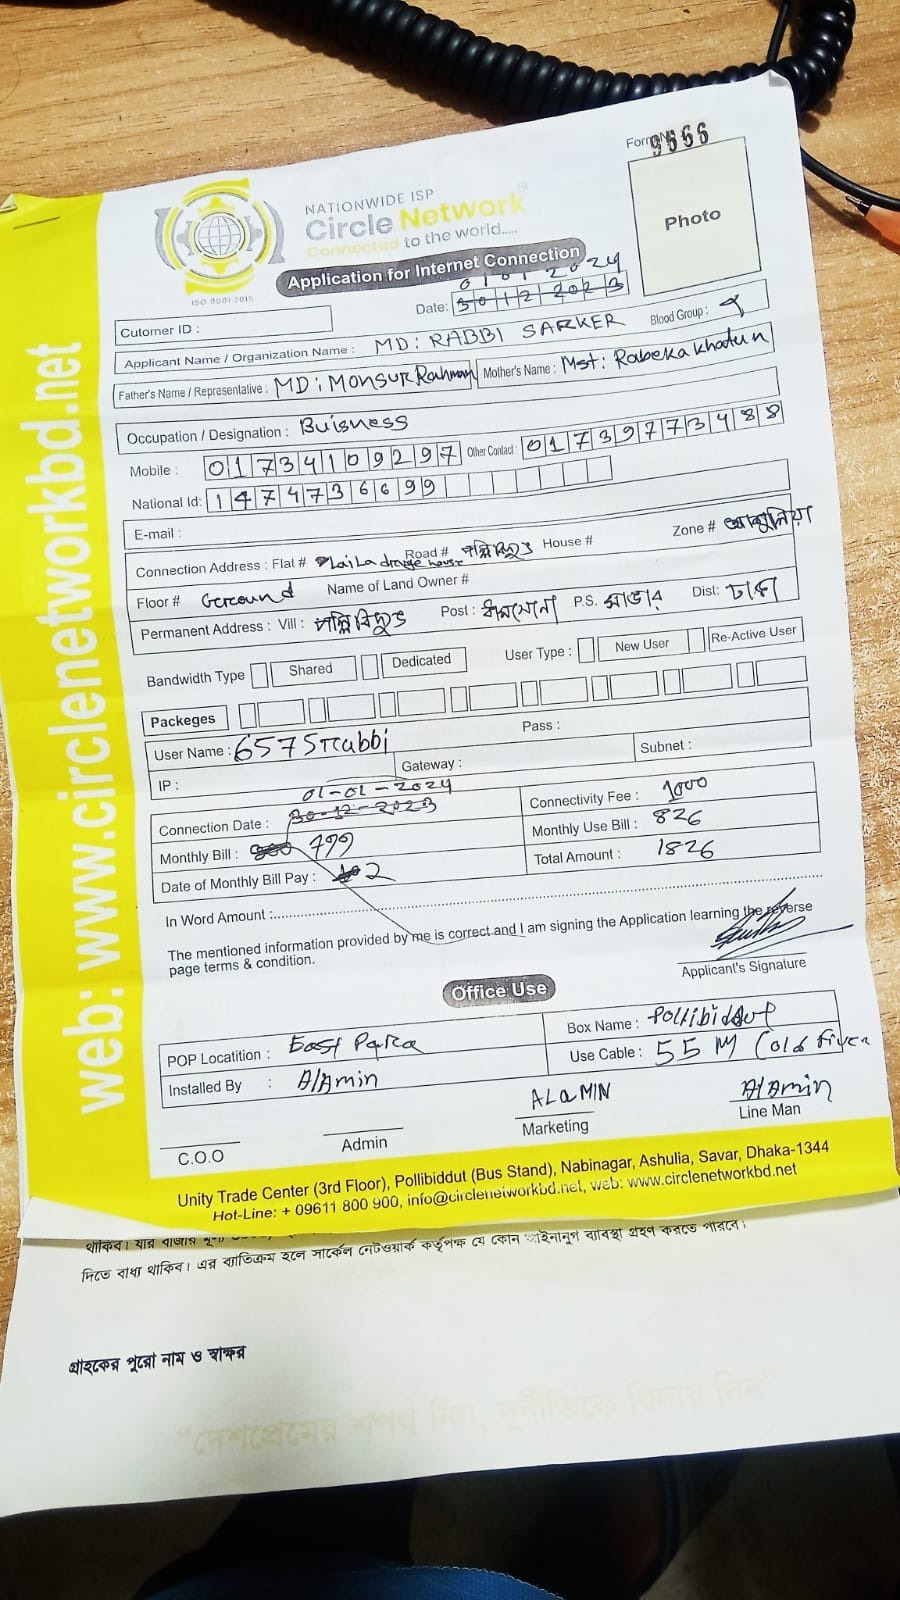 Form No 9566
NATIONWIDE ISP
Circle Network
Connected to the world.....
ISO 9001:2015
Photo
Application for Internet Connection
01 01 2024
Date: 30 12 2023
Cutomer ID :
Applicant Name / Organization Name : MD: RABBI SARKER Blood Group :
Father's Name / Representative : MD: Monsur Rahman Mother's Name : Mst: Rabeka khatun
Occupation / Designation : Buisness
Mobile : 01734109297 Other Contact : 01739773488
National Id: 1474736699
E-mail :
Connection Address : Flat # Road # পল্লিবিদ্যুৎ House # Zone # আশুলিয়া
house
Floor # Gereound Name of Land Owner #
Permanent Address : Vill : পল্লিবিদ্যুৎ Post : P.S. সাভার Dist: ঢাকা
Bandwidth Type Shared Dedicated User Type : New User Re-Active User
Packeges
User Name : 657 Srabbi Pass :
IP : Gateway : Subnet :
01-01-2024
Connection Date : 30-12-2023 Connectivity Fee : 1000
Monthly Bill : 799 Monthly Use Bill : 826
Date of Monthly Bill Pay : 2 Total Amount : 1826
In Word Amount :
The mentioned information provided by me is correct and I am signing the Application learning the reverse
page terms & condition.
Applicant's Signature
Office Use
POP Locatition : East Para Box Name : Pollibiddut
Installed By : AlAmin Use Cable : 55 M (old Fiver
ALaMIN AlAmin
C.O.O Admin Marketing Line Man
Unity Trade Center (3rd Floor), Pollibiddut (Bus Stand), Nabinagar, Ashulia, Savar, Dhaka-1344
Hot-Line: + 09611 800 900, info@circlenetworkbd.net, web: www.circlenetworkbd.net
web: www.circlenetworkbd.net
থাকিব। যার বাজার
দিতে বাধ্য থাকিব। এর ব্যতিক্রম হলে সার্কেল নেটওয়ার্ক কর্তৃপক্ষ যে কোন আইনানুগ ব্যবস্থা গ্রহণ করতে পারবে।
গ্রাহকের পুরো নাম ও স্বাক্ষর
"দেশপ্রেমের শপথ নিন, দুর্নীতিকে বিদায় দিন"